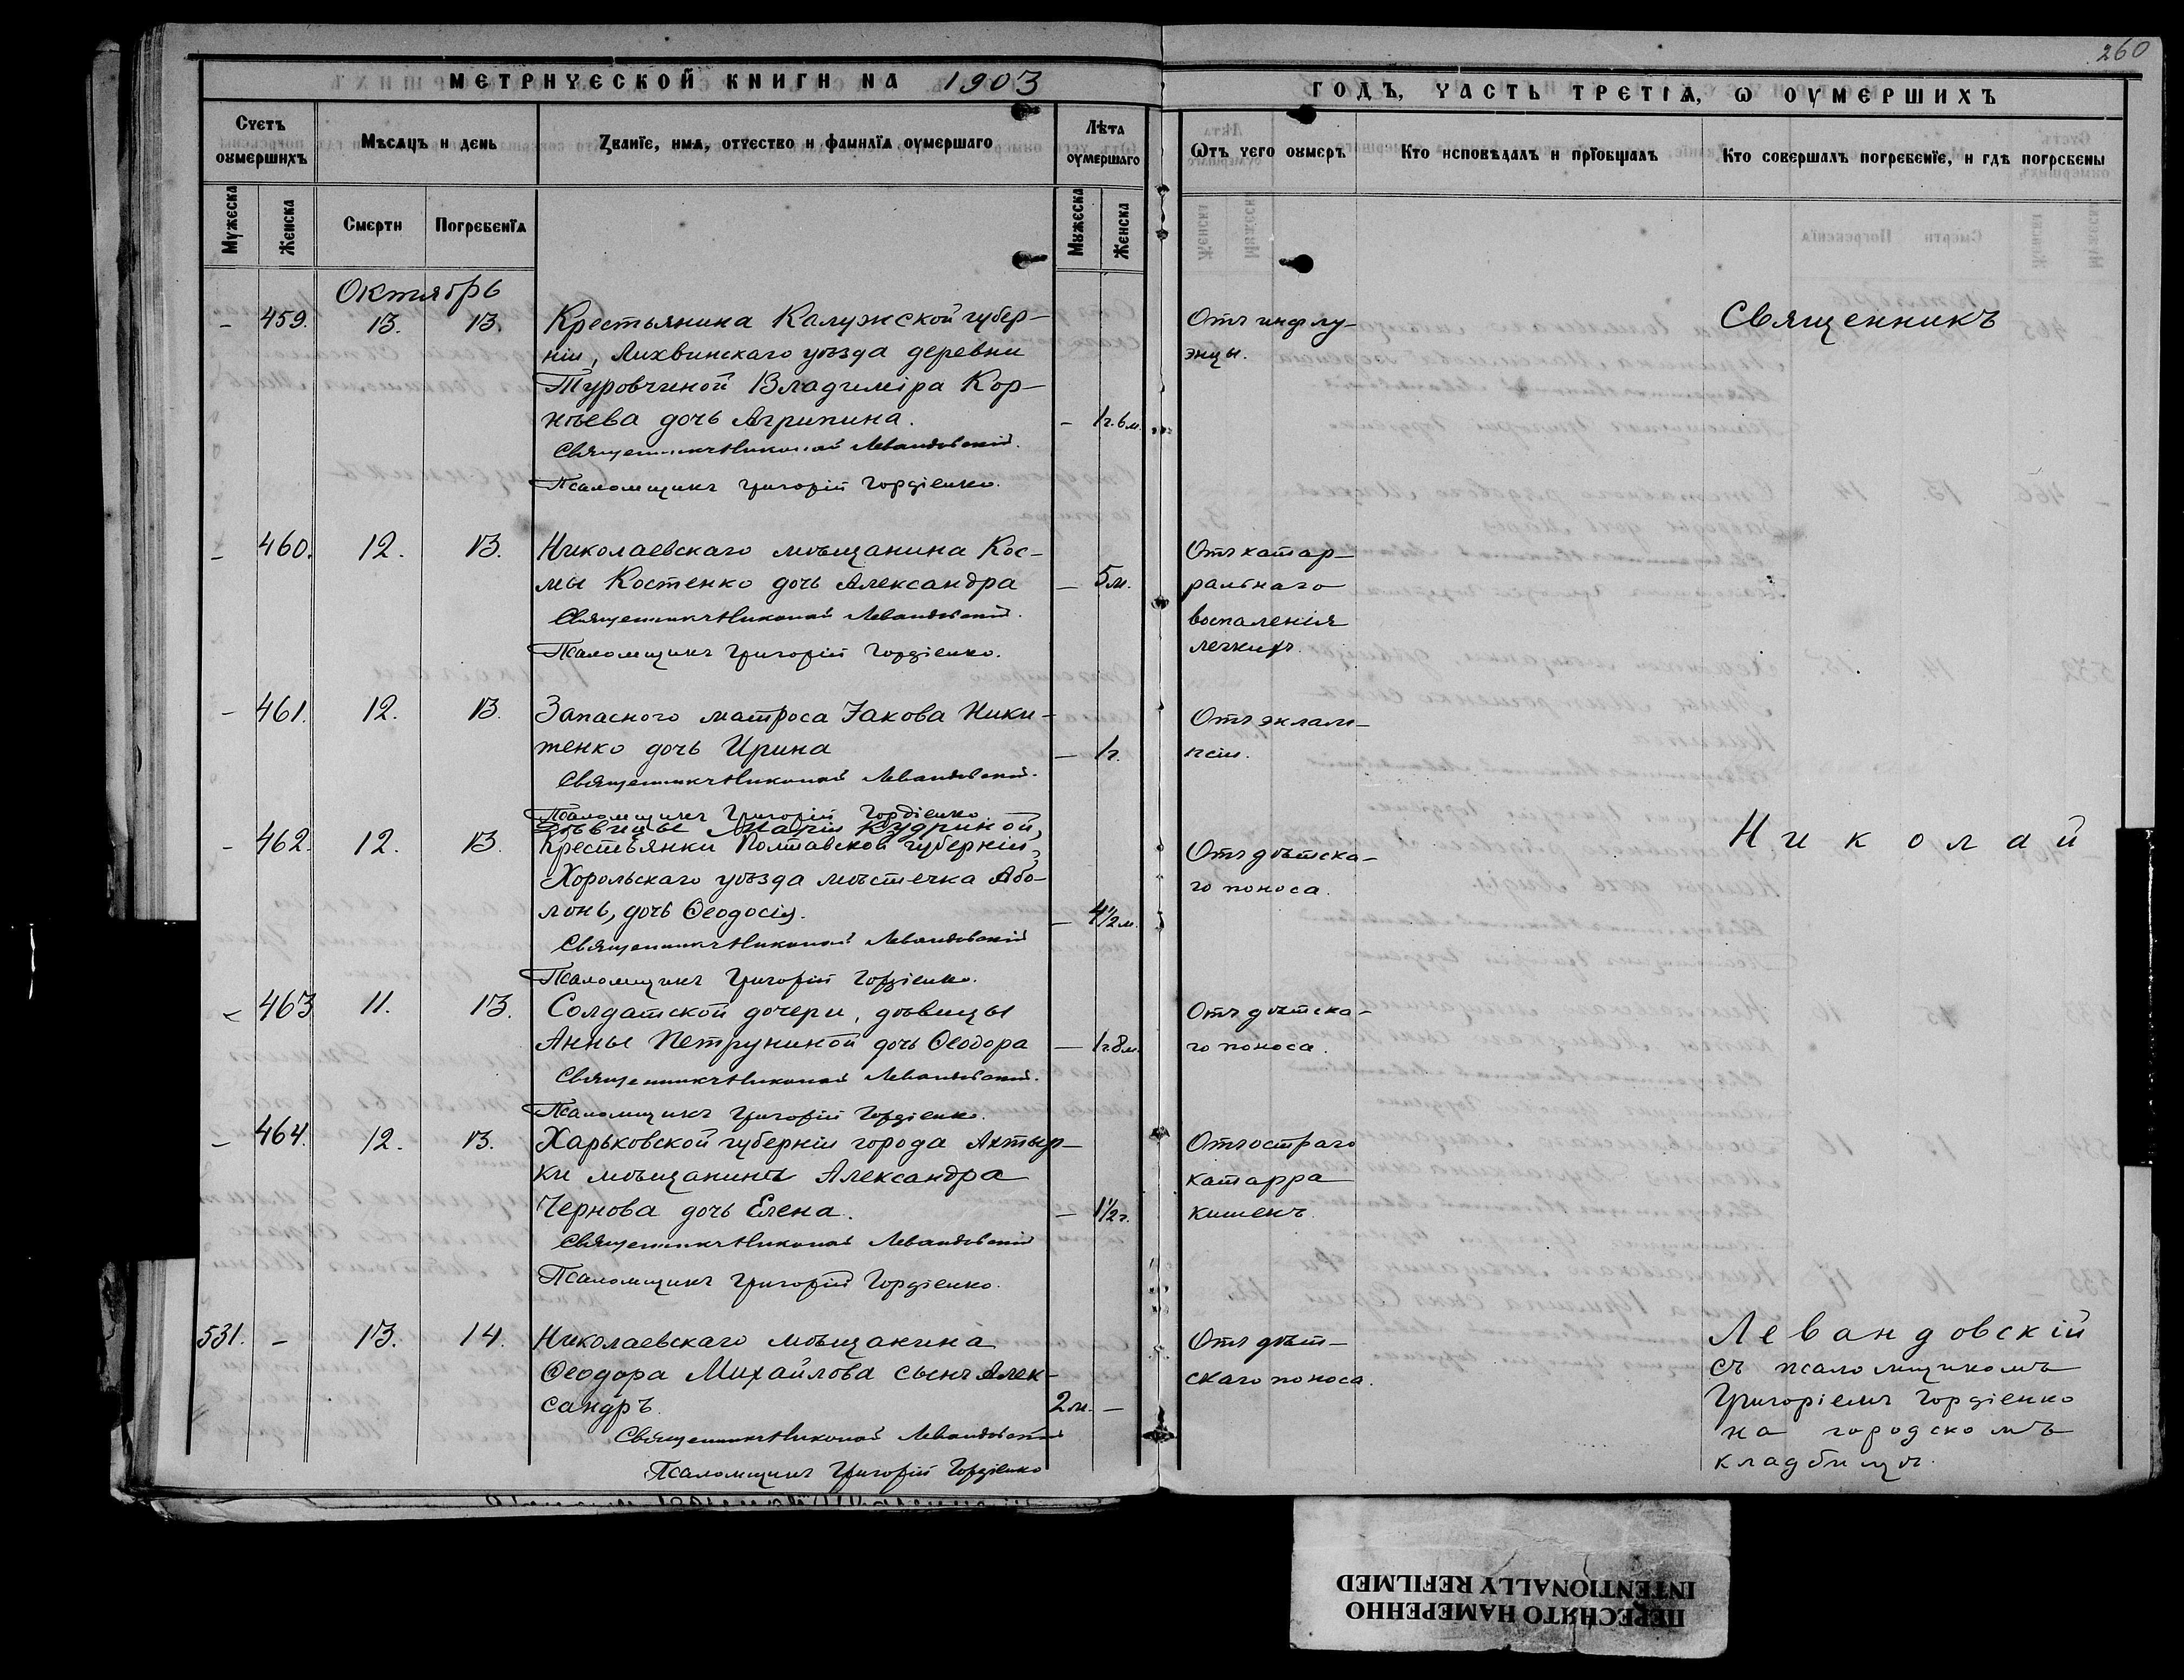 260
МЕТРИЧЕСКОЙ КНИГИ НА 1903 ГОДЪ, ЧАСТЬ ТРЕТІѦ, Ѡ ОУМЕРШИХЪ
Счетъ оумершихъ
Мѣсяцъ и день
Званїе, имя, отчество и фамилїа оумершаго
Лѣта оумершаго
Ѿтъ чего оумеръ
Кто исповѣдалъ и прїобщалъ
Кто совершалъ погребенїе, и гдѣ погребены
Мужеска
Женска
Смерти
Погребенїя
Мужеска
Женска
Октябрь
– 459. 13. 13. Крестьянина Калужской губер-
ніи, Лихвинскаго уѣзда деревни
Туровчиной Владиміра Кор-
нѣева дочь Агрипина. – 1г. 6м.
Отъ инфлу-
энцы.
Священникъ Николай Левандовскій.
Псаломщикъ Григорій Гордіенко.
– 460. 12. 13. Николаевскаго мѣщанина Кос-
мы Костенко дочь Александра – 5м.
Отъ катар-
ральнаго
воспаленія
легкихъ.
Священникъ Николай Левандовскій.
Псаломщикъ Григорій Гордіенко.
– 461. 12. 13. Запаснаго матроса Іакова Ники-
тенко дочь Ирина – 1г.
Отъ эклам-
псіи.
Священникъ Николай Левандовскій.
Псаломщикъ Григорій Гордіенко
– 462. 12. 13. Дѣвицы Маріи Кудриной,
Крестьянки Полтавской губерніи,
Хорольскаго уѣзда мѣстечка Або-
лонь, дочь Ѳеодосія. – 4½м.
Отъ дѣтска-
го поноса.
Священникъ Николай Левандовскій
Псаломщикъ Григорій Гордіенко.
– 463 11. 13. Солдатской дочери, дѣвицы
Анны Петруниной дочь Ѳеодора – 1г. 8м.
Отъ дѣтска-
го поноса.
Священникъ Николай Левандовскій.
Псаломщикъ Григорій Гордіенко.
– 464. 12. 13. Харьковской губерніи города Ахтыр-
ки мѣщанина Александра
Чернова дочь Елена. – 1½г.
Отъ остраго
катарра
кишекъ.
Священникъ Николай Левандовскій
Псаломщикъ Григорій Гордіенко.
531. – 13. 14. Николаевскаго мѣщанина
Ѳеодора Михайлова сынъ Алек-
сандръ 2м. –
Отъ дѣт-
скаго поноса.
Священникъ Николай Левандовскій
Псаломщикъ Григорій Гордіенко
Священникъ
Николай
Левандовскій
съ псаломщикомъ
Григоріемъ Гордіенко
на городскомъ
кладбищѣ.
ПЕРЕСНЯТО НАМЕРЕННО
INTENTIONALLY REFILMED